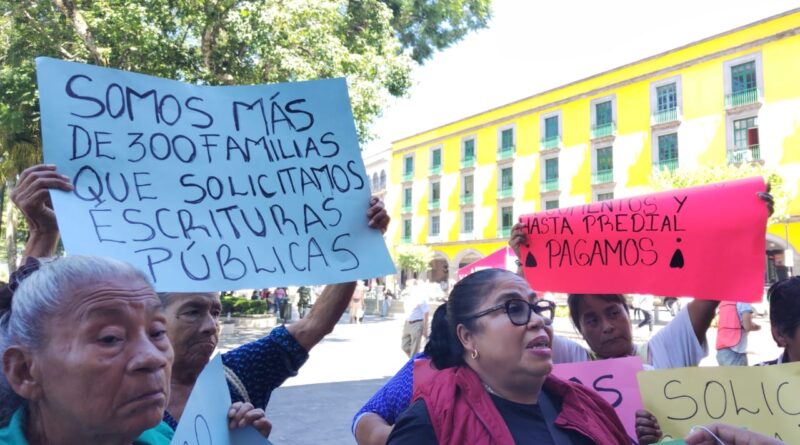 SOMOS MÁS
DE 300 FAMILIAS
QUE SOLICITAMOS
ESCRITURAS
PÚBLICAS
Y
HASTA PREDIAL
PAGAMOS
SOLIC